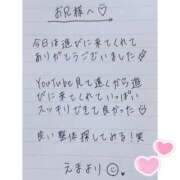 お兄様へ♡
今日は遊びに来てくれて
ありがとうございました♡
YouTube見て遠くから遊
びに来てくれていっぱい
スッキリできて良かった♡
良い整体探してみる！笑
えまより☺